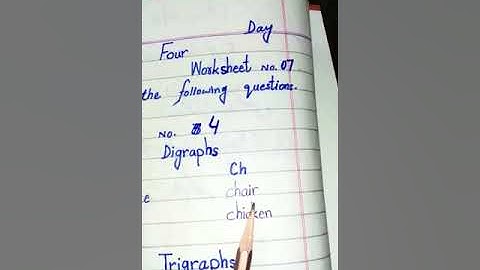 Day
Four
Worksheet No. 07
the following questions.
No. 4
Digraphs
Ch
chair
chicken
Trigraphs